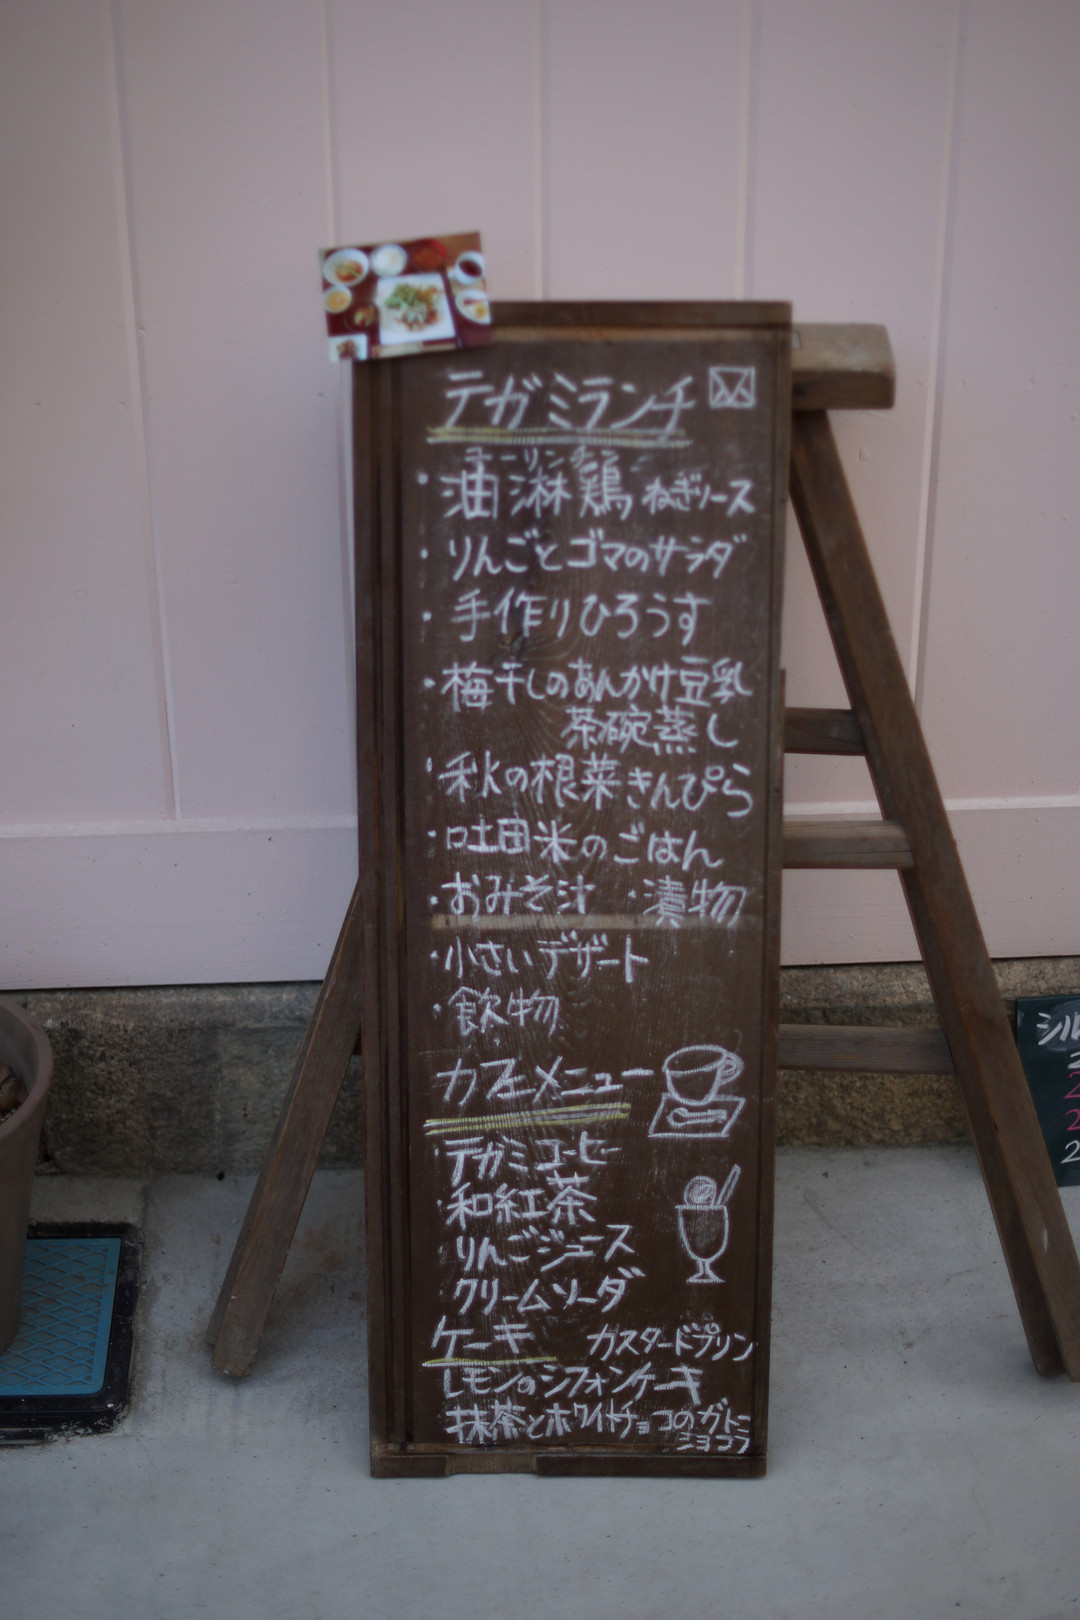 テガミランチ
ユーリンチー
・油淋鶏 ねぎソース
・りんごとゴマのサラダ
・手作りひろうす
・梅干しのあんかけ豆乳
茶碗蒸し
・秋の根菜きんぴら
・吐田米のごはん
・おみそ汁 ・漬物
・小さいデザート
・飲物
カフェメニュー
テガミコーヒー
和紅茶
りんごジュース
クリームソーダ
ケーキ カスタードプリン
レモンのシフォンケーキ
抹茶とホワイトチョコのガトー
ショコラ
シル
2
2
2